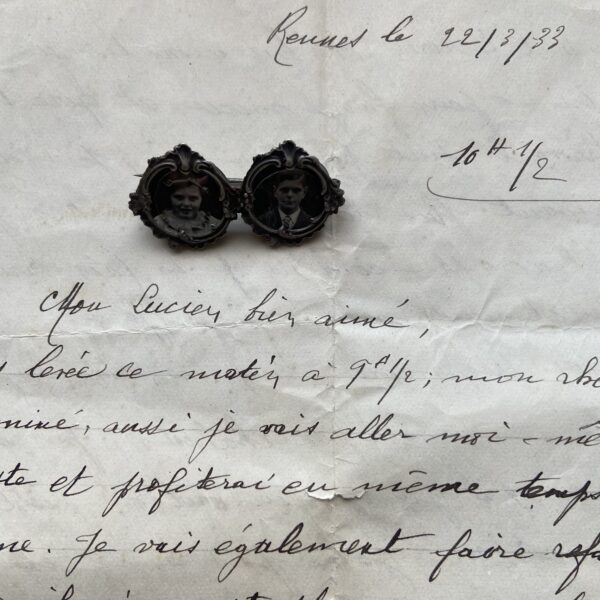 Rennes le 22/3/33
10 H 1/2
Mon Lucien bien aimé,
levée ce matin à 9 H 1/2 ; mon
aussi je vais aller moi - mê
et profiterai en même temps
Je vais également faire